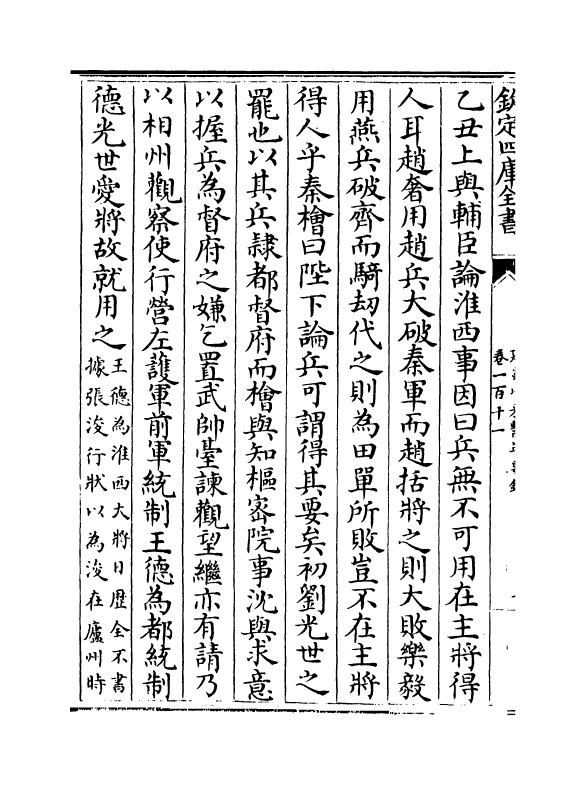 欽定四庫全書
卷一百十一
乙丑上與輔臣論淮西事因曰兵無不可用在主將得
人耳趙奢用趙兵大破秦軍而趙括將之則大敗樂毅
用燕兵破齊而騎劫代之則為田單所敗豈不在主將
得人乎秦檜曰陛下論兵可謂得其要矣初劉光世之
罷也以其兵隷都督府而檜與知樞密院事沈與求意
以握兵為督府之嫌乞置武帥臺諫觀望繼亦有請乃
以相州觀察使行營左護軍前軍統制王德為都統制
德光世愛將故就用之
王德為淮西大將日歴全不書
據張浚行狀以為浚在廬州時